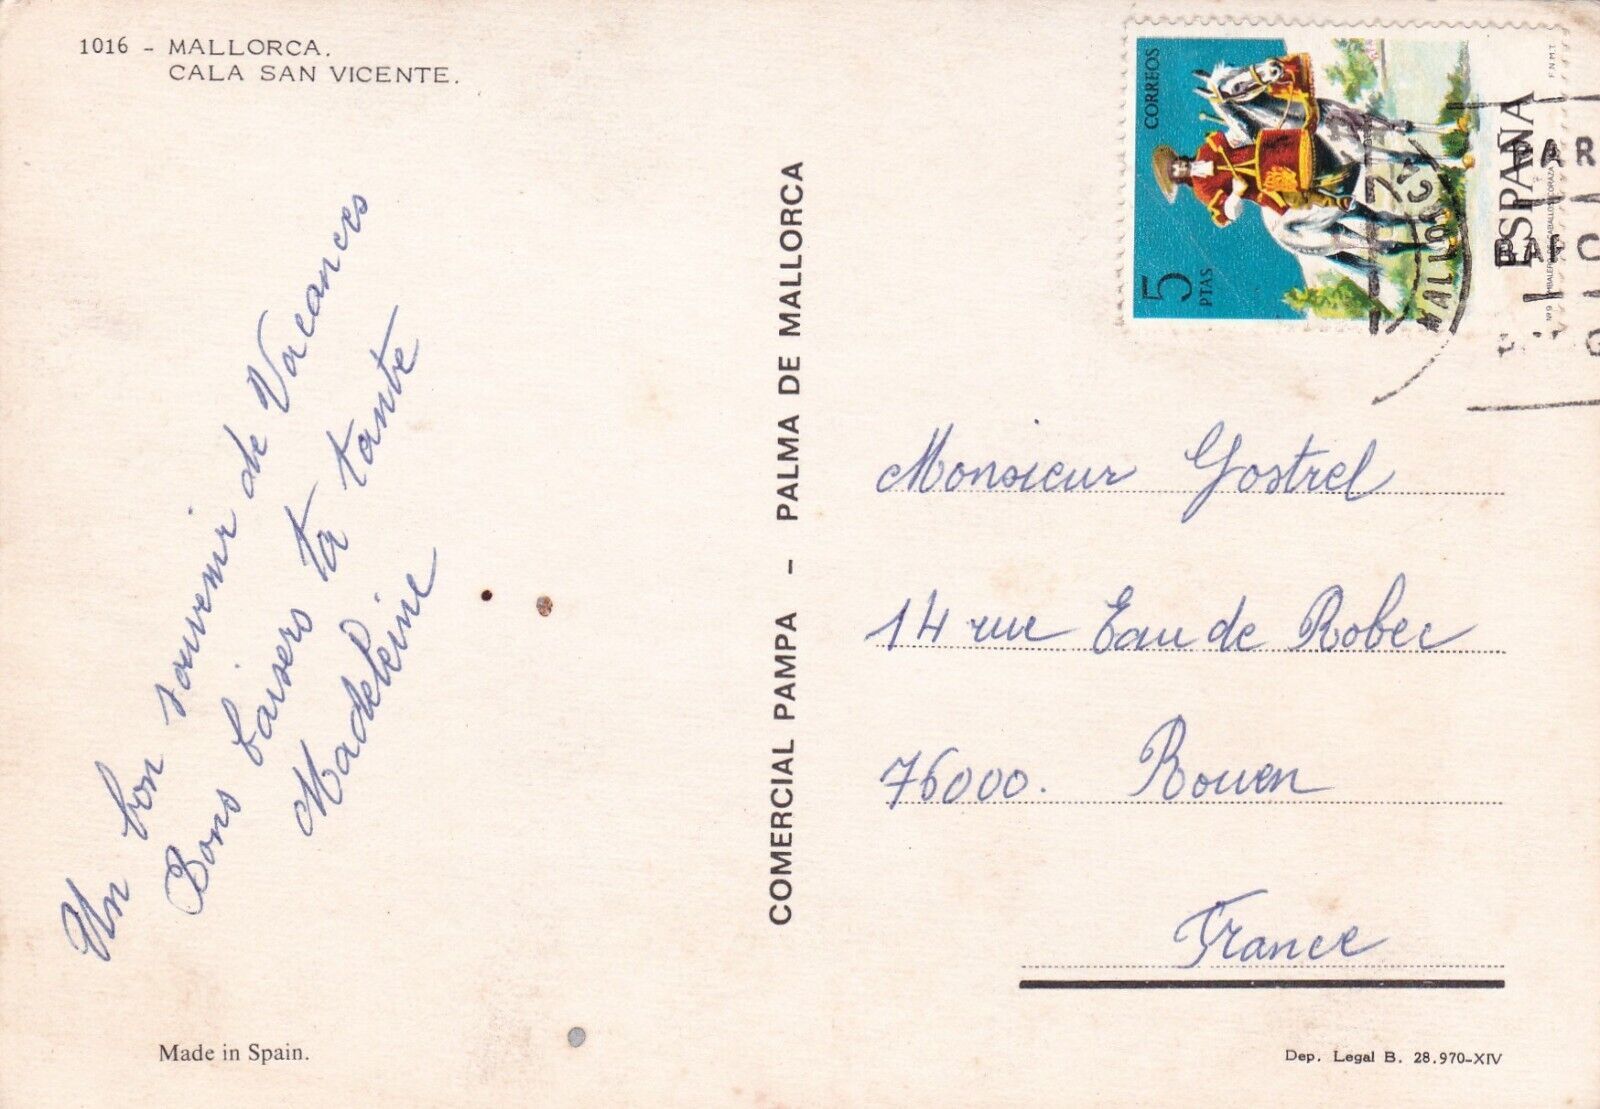 1016 - MALLORCA.
CALA SAN VICENTE.
Un bon souvenir de Vacances
Bons baisers ta tante
Madeleine
Made in Spain.
COMERCIAL PAMPA - PALMA DE MALLORCA
CORREOS
5
PTAS
ESPAÑA
F.N.M.T.
MALLOR
PAR
Monsieur Gostrel
14 rue Eau de Robec
76000. Rouen
France
Dep. Legal B. 28.970-XIV